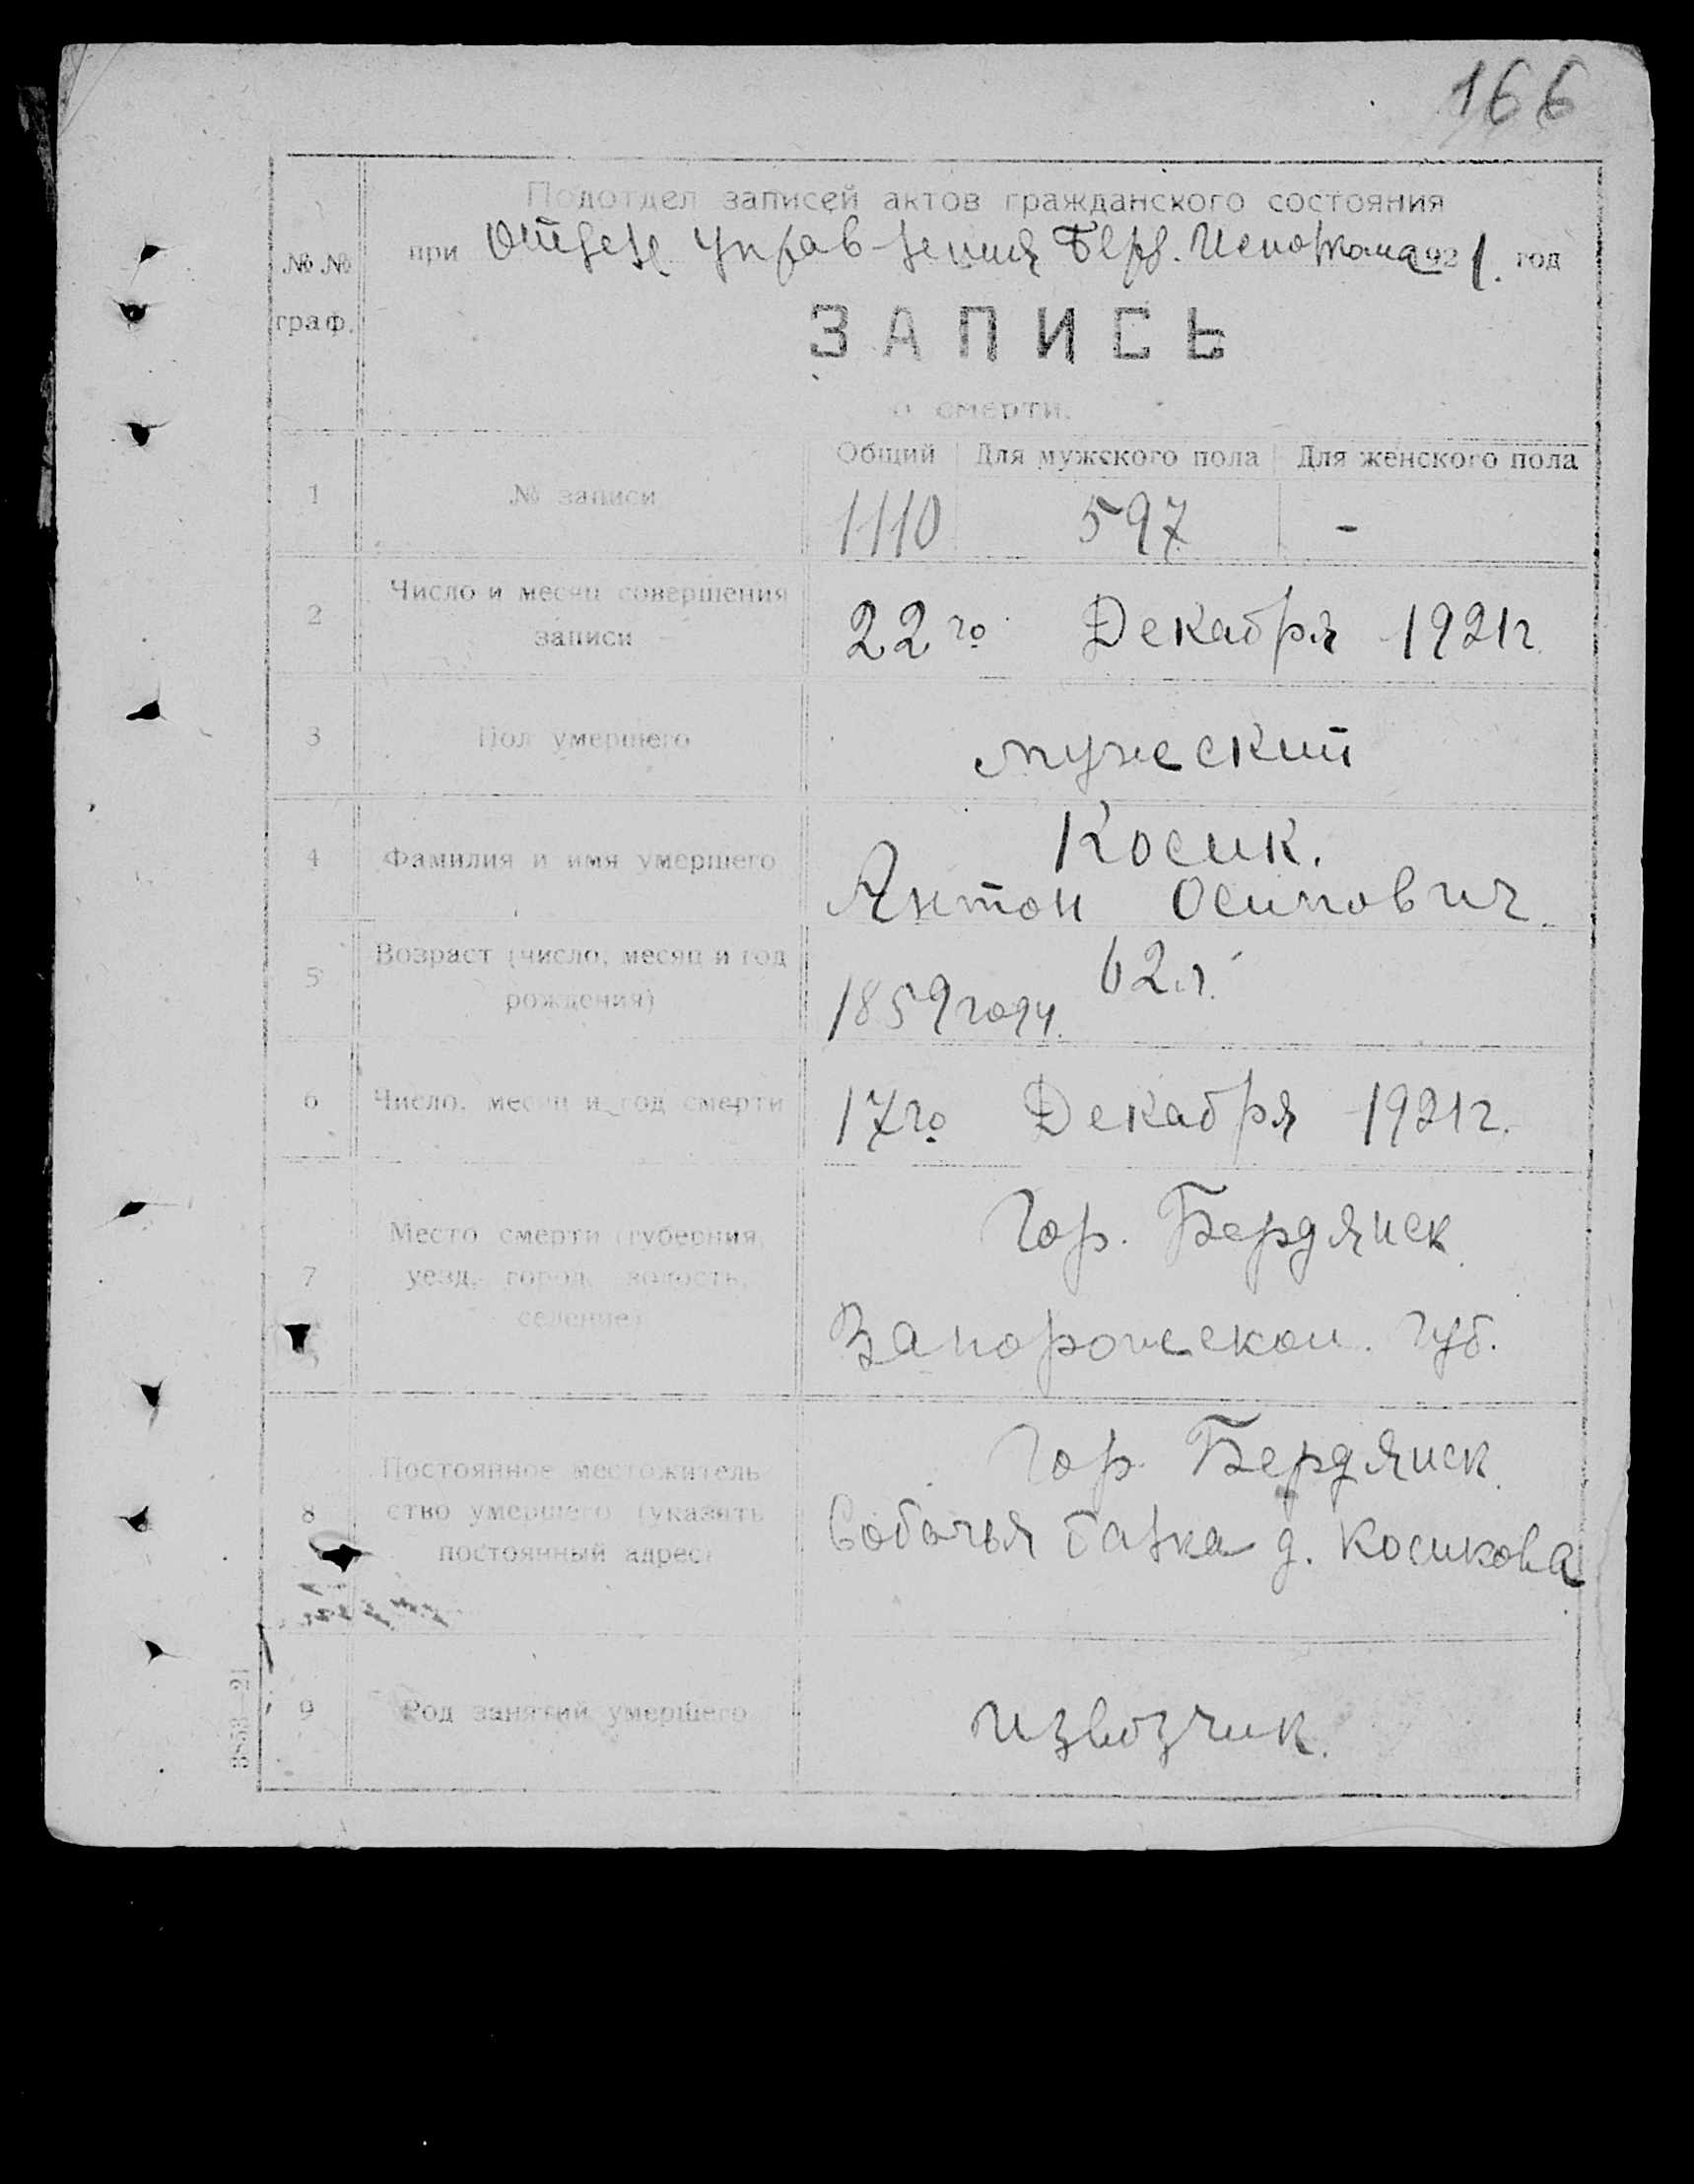 166
Подотдел записей актов гражданского состояния
при Отделе Управления Берд. Исполкома 1921. год
№ №
граф.
ЗАПИСЬ
о смерти.
Общий Для мужского пола Для женского пола
1 № записи 1110 597 -
2 Число и месяц совершения
записи 22го Декабря 1921г.
3 Пол умершего мужеский
4 Фамилия и имя умершего Косик.
Антон Осипович.
5 Возраст (число, месяц и год
рождения) 62 л.
1859 году.
6 Число, месяц и год смерти 17го Декабря 1921г.
7 Место смерти (губерния,
уезд, город, волость,
селение)
Гор. Бердянск
Запорожской. Губ.
8 Постоянное местожитель
ство умершего (указать
постоянный адрес)
Гор. Бердянск.
Собачья балка д. Косикова
9 Род занятий умершего Извозчик.